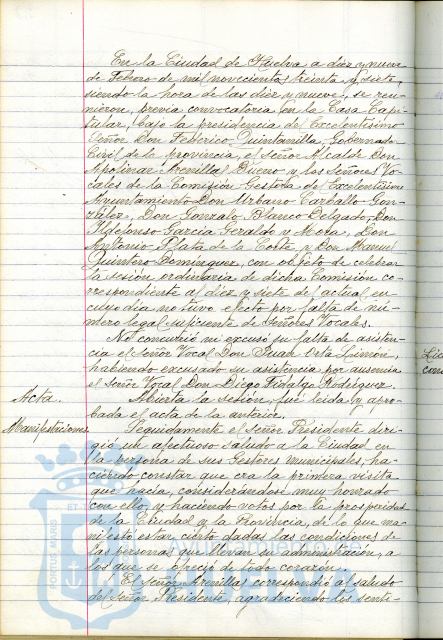 En la Ciudad de Huelva a diez y nueve
de Febrero de mil novecientos treinta y siete,
siendo la hora de las diez y nueve, se reu-
nieron, previa convocatoria, en la Casa Capi-
tular, bajo la presidencia del Excelentísimo
Señor Don Federico Quintanilla, Gobernador
Civil de la provincia, el Señor Alcalde Don
Apolinar Arenillas Bueno y los Señores Vo-
cales de la Comisión Gestora del Excelentísimo
Ayuntamiento Don Urbano Carballo Gon-
zález, Don Gonzalo Blanco Delgado, Don
Ildefonso García Geraldo y Mora, Don
Antonio Plata de la Corte y Don Manuel
Quintero Domínguez, con objeto de celebrar
la sesión ordinaria de dicha Comisión co-
rrespondiente al diez y siete del actual, en
cuyo día no tuvo efecto por falta de nú-
mero legal suficiente de Señores Vocales.
No concurrió ni excusó su falta de asisten-
cia el Señor Vocal Don Juan Limón,
habiendo excusado su asistencia por ausencia
el Señor Vocal Don Diego Fidalgo Rodríguez.
Acta. Abierta la sesión, fué leída y apro-
bada el acta de la anterior.
Manifestaciones. Seguidamente el Señor Presidente diri-
gió un afectuoso saludo a la Ciudad en
la persona de sus Gestores municipales, ha-
ciendo constar que era la primera visita
que hacía, considerándose muy honrado
con ello, y haciendo votos por la prosperidad
de la Ciudad y la Provincia, de lo que ma-
nifestó estar cierto dadas las condiciones de
las personas que llevan su administración, a
los que se ofreció de todo corazón.
El Señor Arenillas correspondió al saludo
del Señor Presidente, agradeciendo los senti-
PORTUS MARIS ET